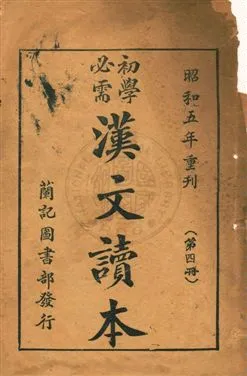 昭和五年重刊
(第四冊)
初學
必需
漢文讀本
蘭記圖書部發行